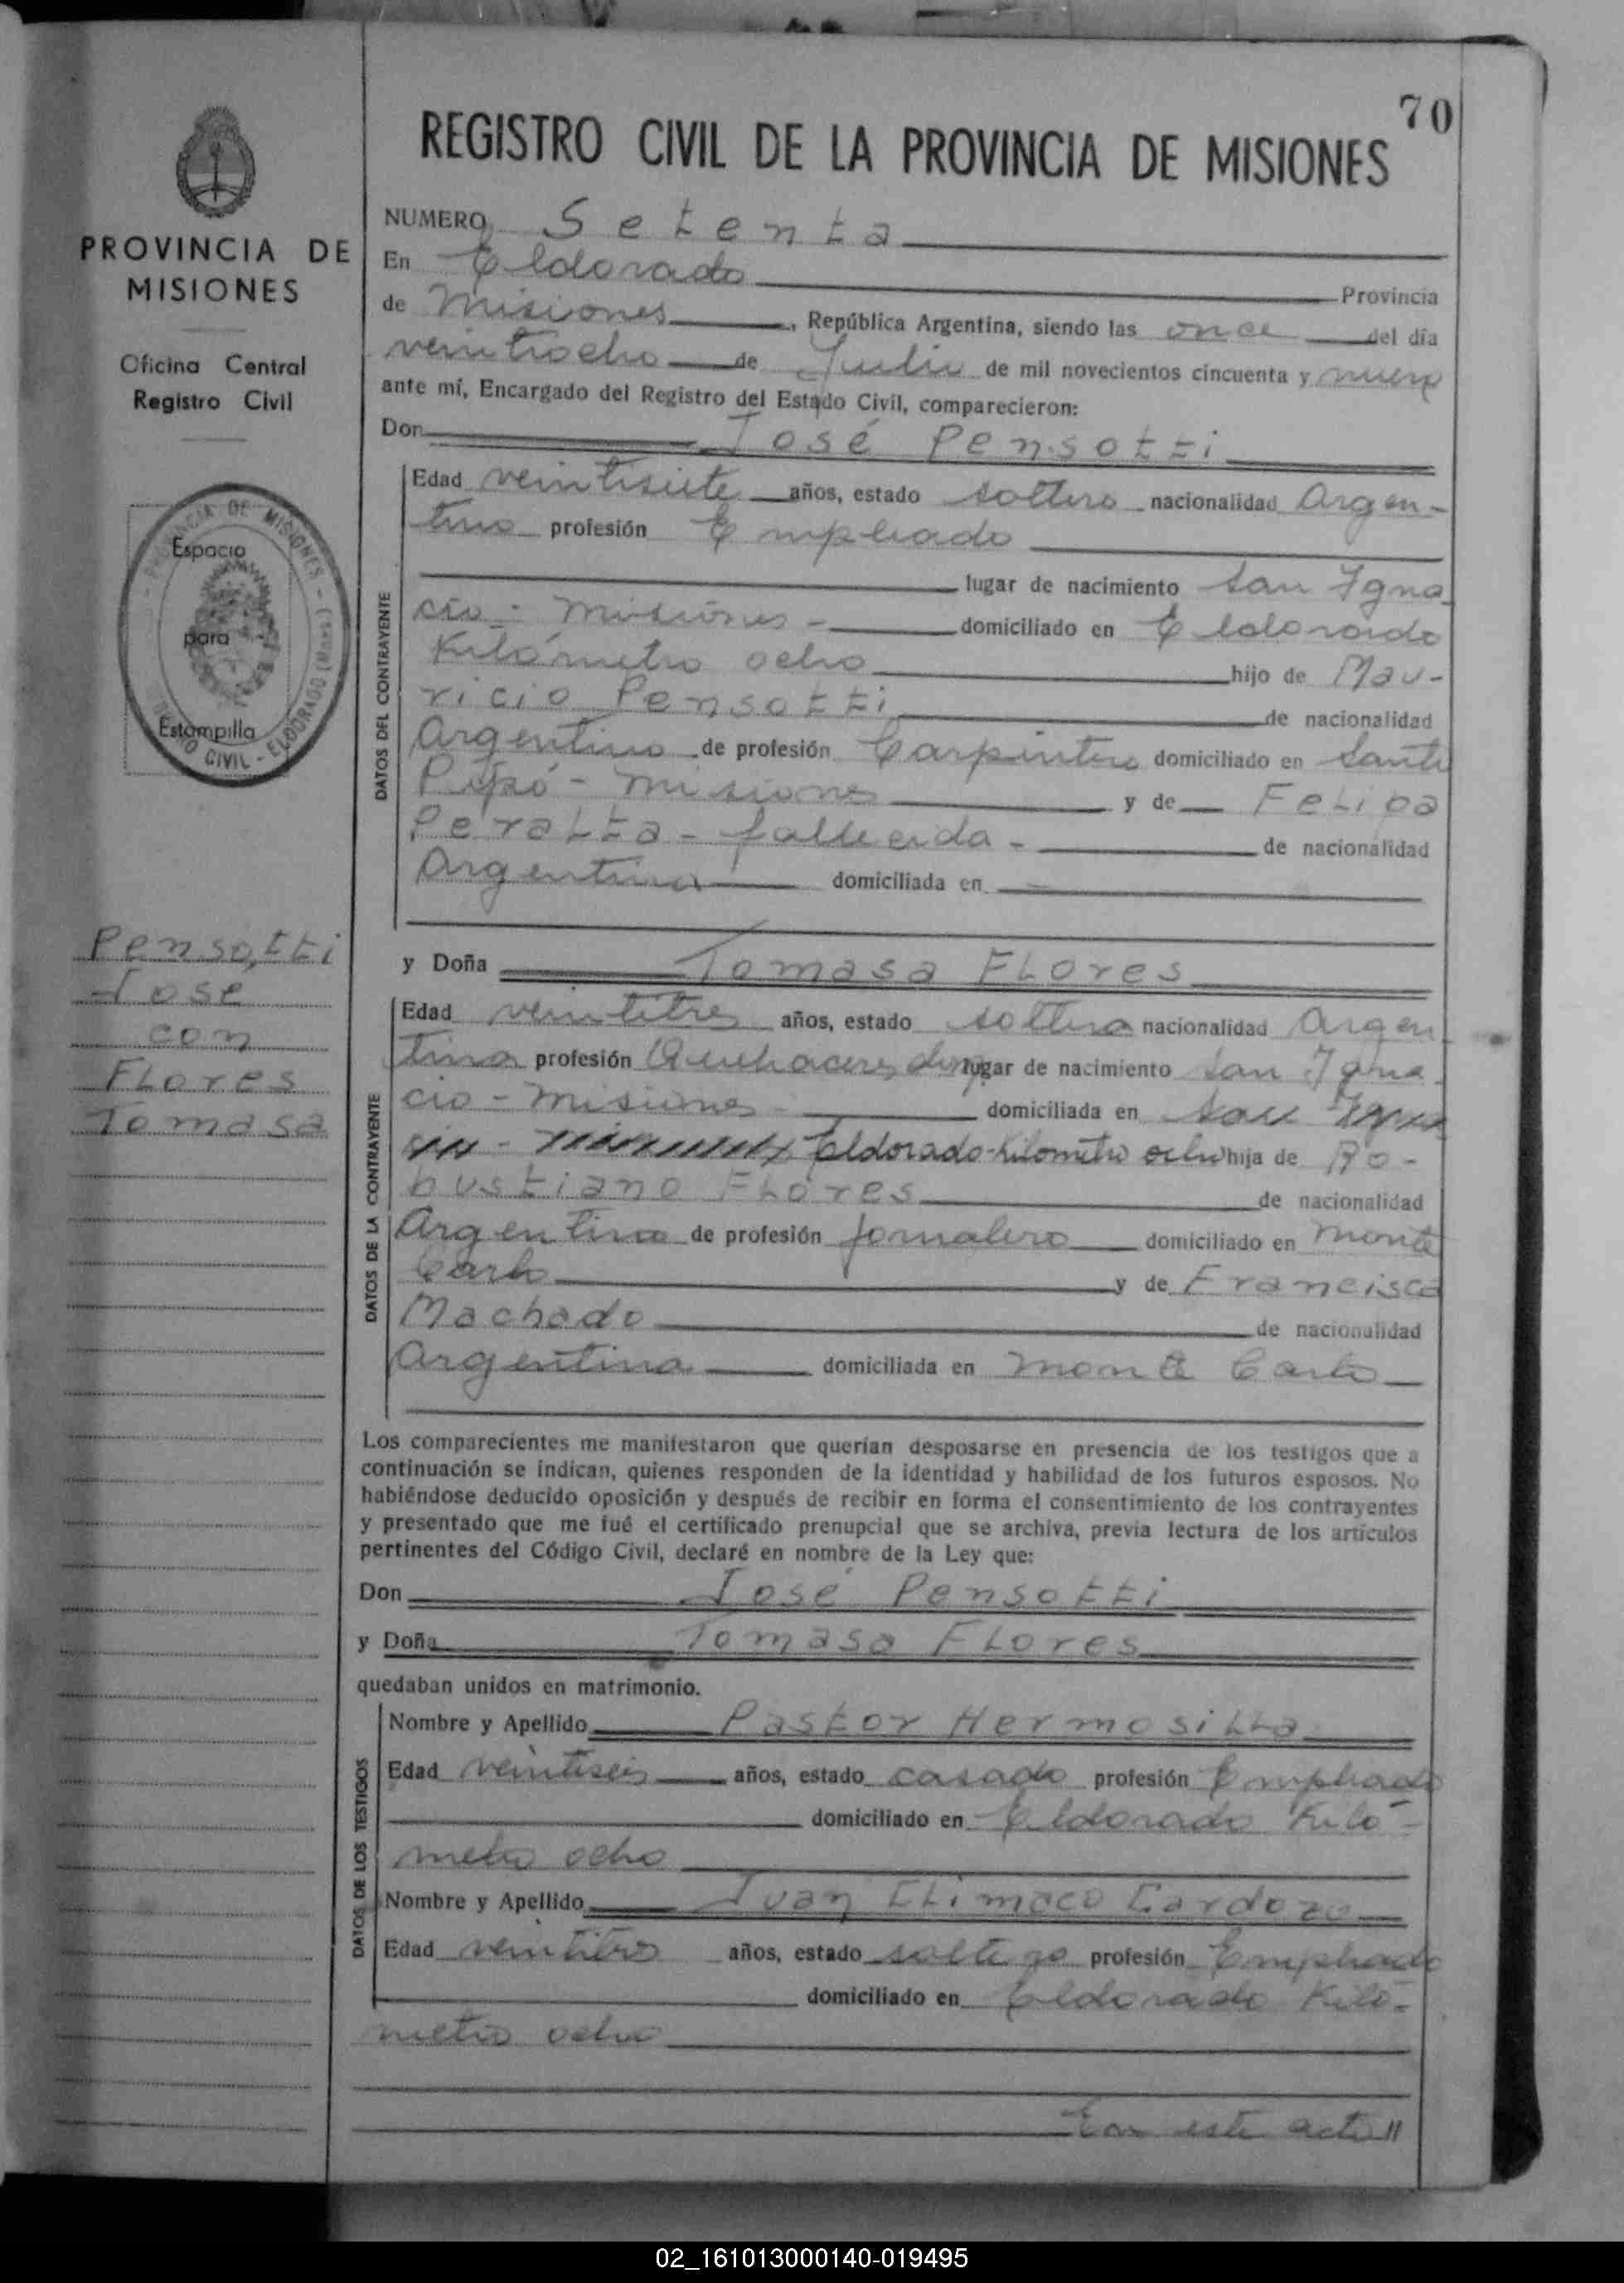 70
REGISTRO CIVIL DE LA PROVINCIA DE MISIONES
PROVINCIA DE
MISIONES
Oficina Central
Registro Civil
Espacio
para
Estampilla
Pensotti
José
con
Flores
Tomasa
NUMERO Setenta
En Eldorado Provincia
de Misiones, República Argentina, siendo las once del día
veintiocho de Julio de mil novecientos cincuenta y nueve
ante mí, Encargado del Registro del Estado Civil, comparecieron:
Don José Pensotti
DATOS DEL CONTRAYENTE
Edad veintisiete años, estado soltero nacionalidad Argen-
tino profesión Empleado
lugar de nacimiento San Igna
cio - Misiones - domiciliado en Eldorado
Kilómetro ocho hijo de Mau-
ricio Pensotti de nacionalidad
Argentino de profesión Carpintero domiciliado en Santo
Pipó - Misiones y de Felipa
Peralta - fallecida - de nacionalidad
Argentina domiciliada en
y Doña Tomasa Flores
DATOS DE LA CONTRAYENTE
Edad veintitres años, estado soltera nacionalidad Argen
tina profesión Quehaceres dom lugar de nacimiento San Igna
cio - Misiones - domiciliada en San Igna
cio - Misiones Eldorado-Kilometro ocho hija de Ro-
bustiano Flores de nacionalidad
Argentina de profesión Jornalero domiciliado en Monte
Carlo y de Francisca
Machado de nacionalidad
Argentina domiciliada en Monte Carlo
Los comparecientes me manifestaron que querían desposarse en presencia de los testigos que a
continuación se indican, quienes responden de la identidad y habilidad de los futuros esposos. No
habiéndose deducido oposición y después de recibir en forma el consentimiento de los contrayentes
y presentado que me fué el certificado prenupcial que se archiva, previa lectura de los artículos
pertinentes del Código Civil, declaré en nombre de la Ley que:
Don José Pensotti
y Doña Tomasa Flores
quedaban unidos en matrimonio.
DATOS DE LOS TESTIGOS
Nombre y Apellido Pastor Hermosilla
Edad veintiseis años, estado casado profesión Empleado
domiciliado en Eldorado Kiló-
metro ocho
Nombre y Apellido Juan Climaco Cardozo
Edad veintitres años, estado soltero profesión Empleado
domiciliado en Eldorado Kiló-
metro ocho
En este acto //
02_161013000140-019495